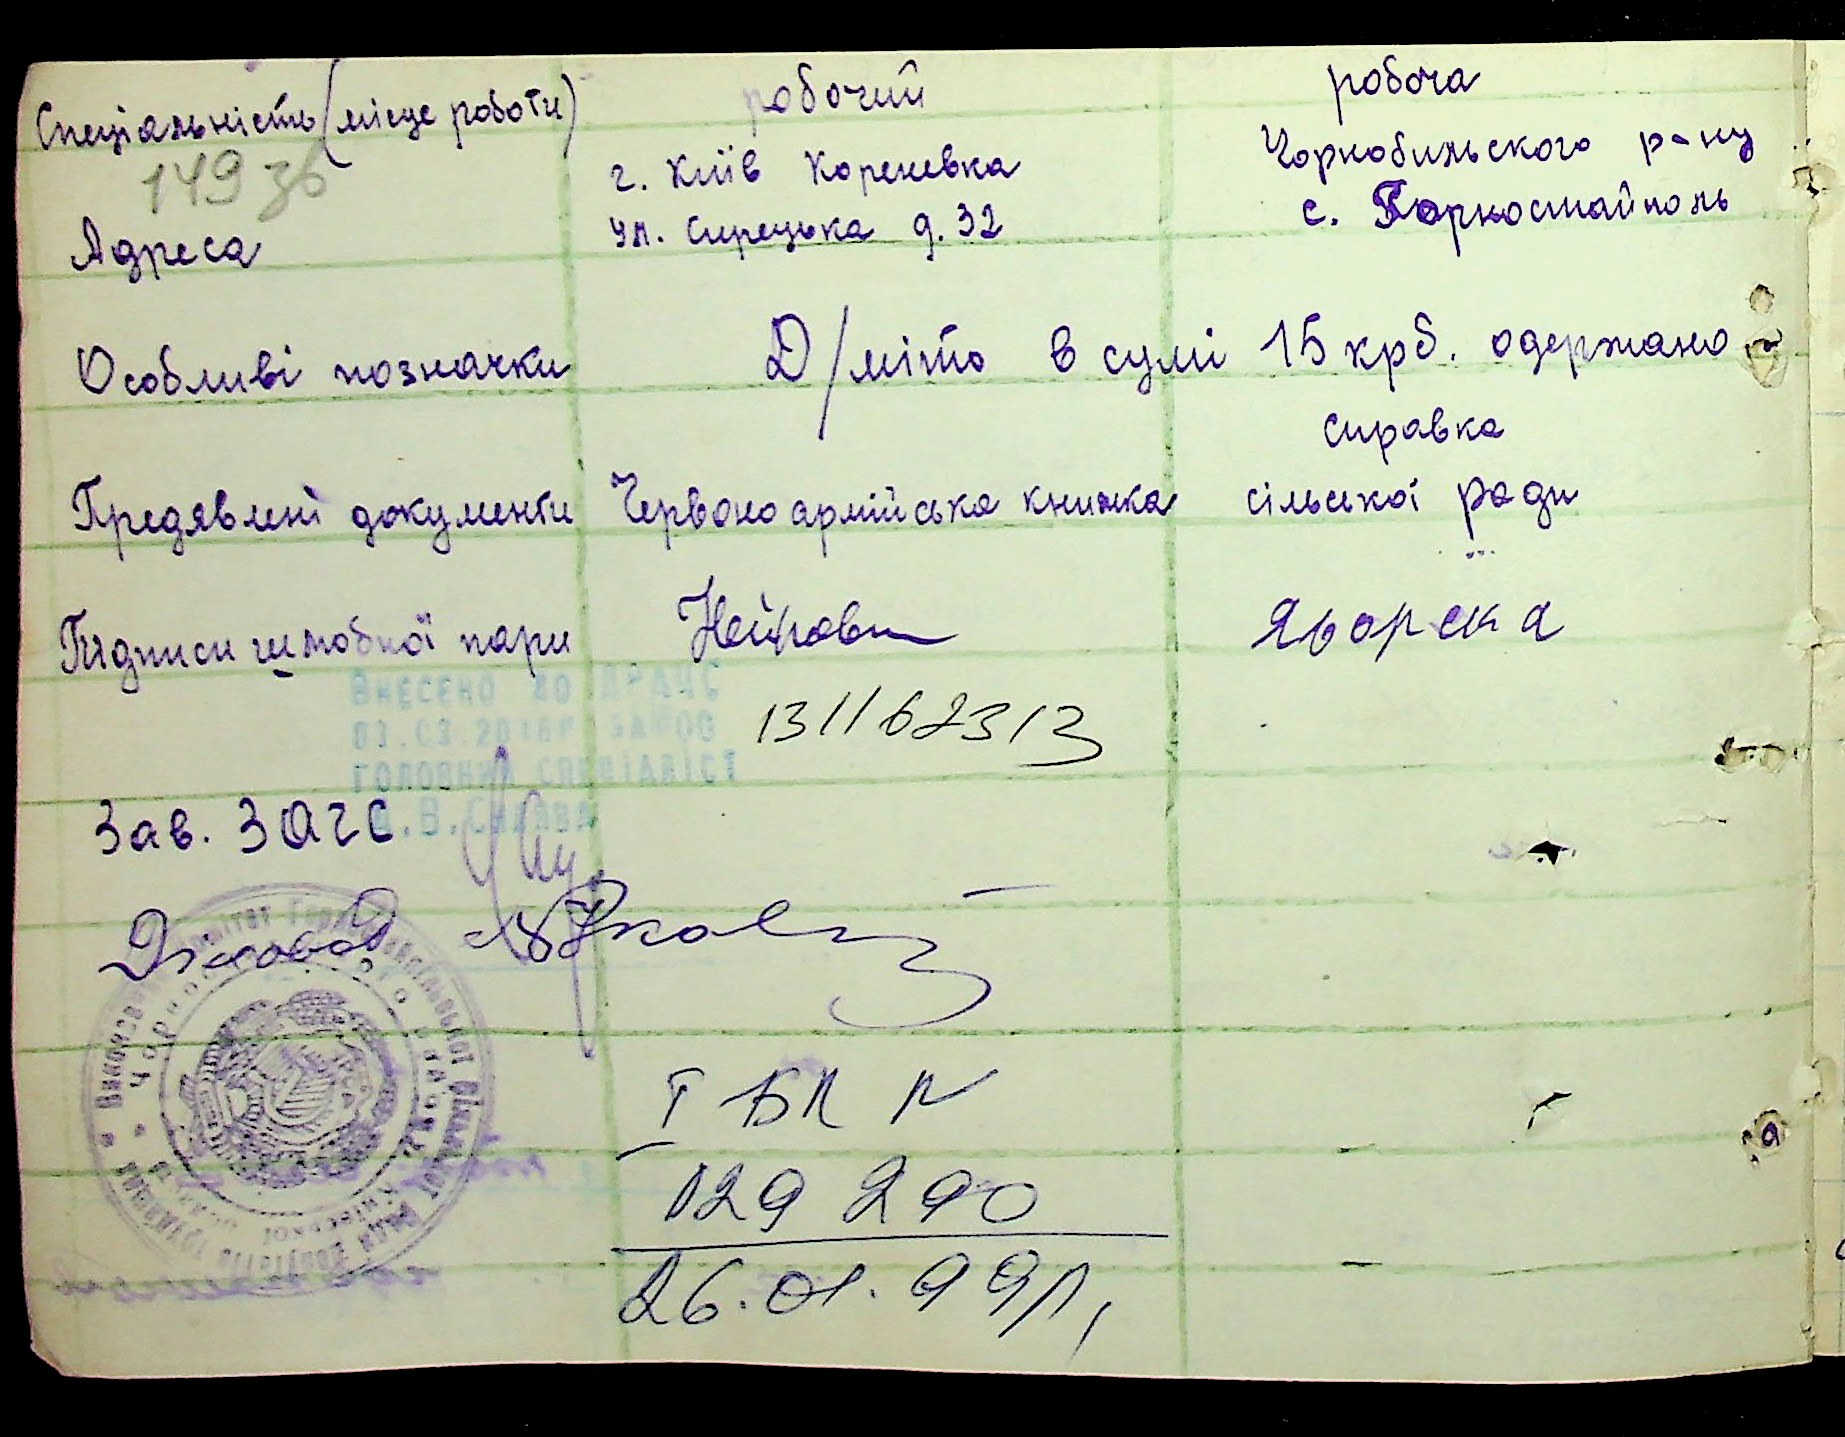 Спеціальність (місце роботи) робочий робоча
149 зб
Адреса г. Київ Кореневка Чорнобильского р-ну
ул. Сирецька д. 32 с. Горностайполь
Особливі позначки Д/міто в сумі 15 крб. одержано
справка
Предявлені документи Червоноармійська книжка сільської ради
Підписи шлюбної пари Яворска
ВНЕСЕНО ДО ДРАЦС
ГОЛОВНИЙ СПЕЦІАЛІСТ
131162313
Зав. ЗАГС
І БК N
029290
26.01.99р,